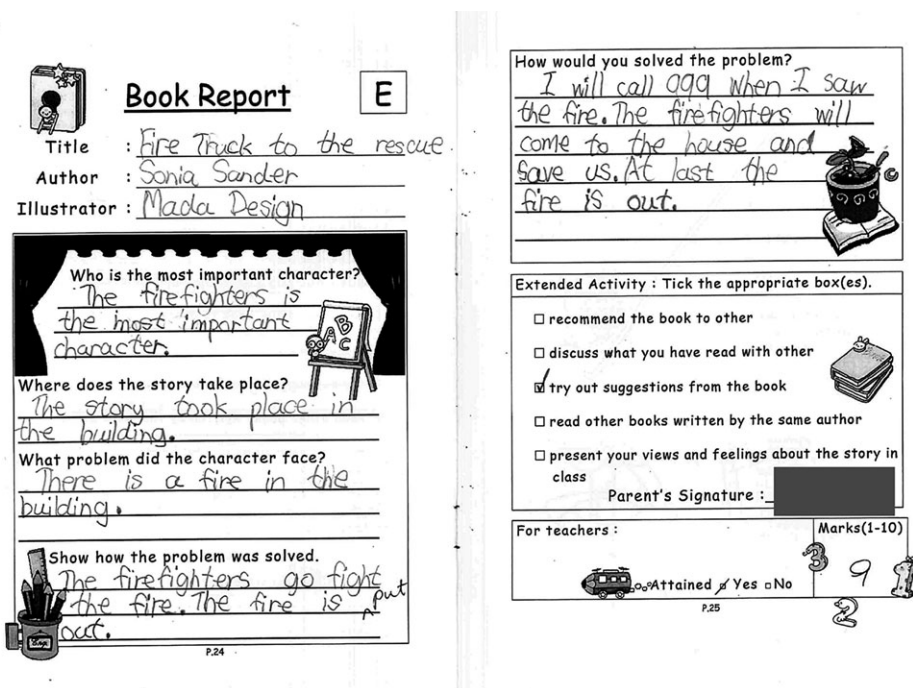 Book Report
E
Title : Fire Truck to the rescue.
Author : Sonia Sander
Illustrator : Mada Design
Who is the most important character?
The firefighters is
the most important
character.
ABC
Where does the story take place?
The story took place in
the building.
What problem did the character face?
There is a fire in the
building.
Show how the problem was solved.
The firefighters go fight
the fire. The fire is put
out.
P.24
How would you solved the problem?
I will call 999 when I saw
the fire. The firefighters will
come to the house and
save us. At last the
fire is out.
Extended Activity : Tick the appropriate box(es).
□ recommend the book to other
□ discuss what you have read with other
☑ try out suggestions from the book
□ read other books written by the same author
□ present your views and feelings about the story in
class
Parent's Signature :
For teachers :
Marks(1-10)
3
9
1
Attained ☑ Yes □ No
2
P.25